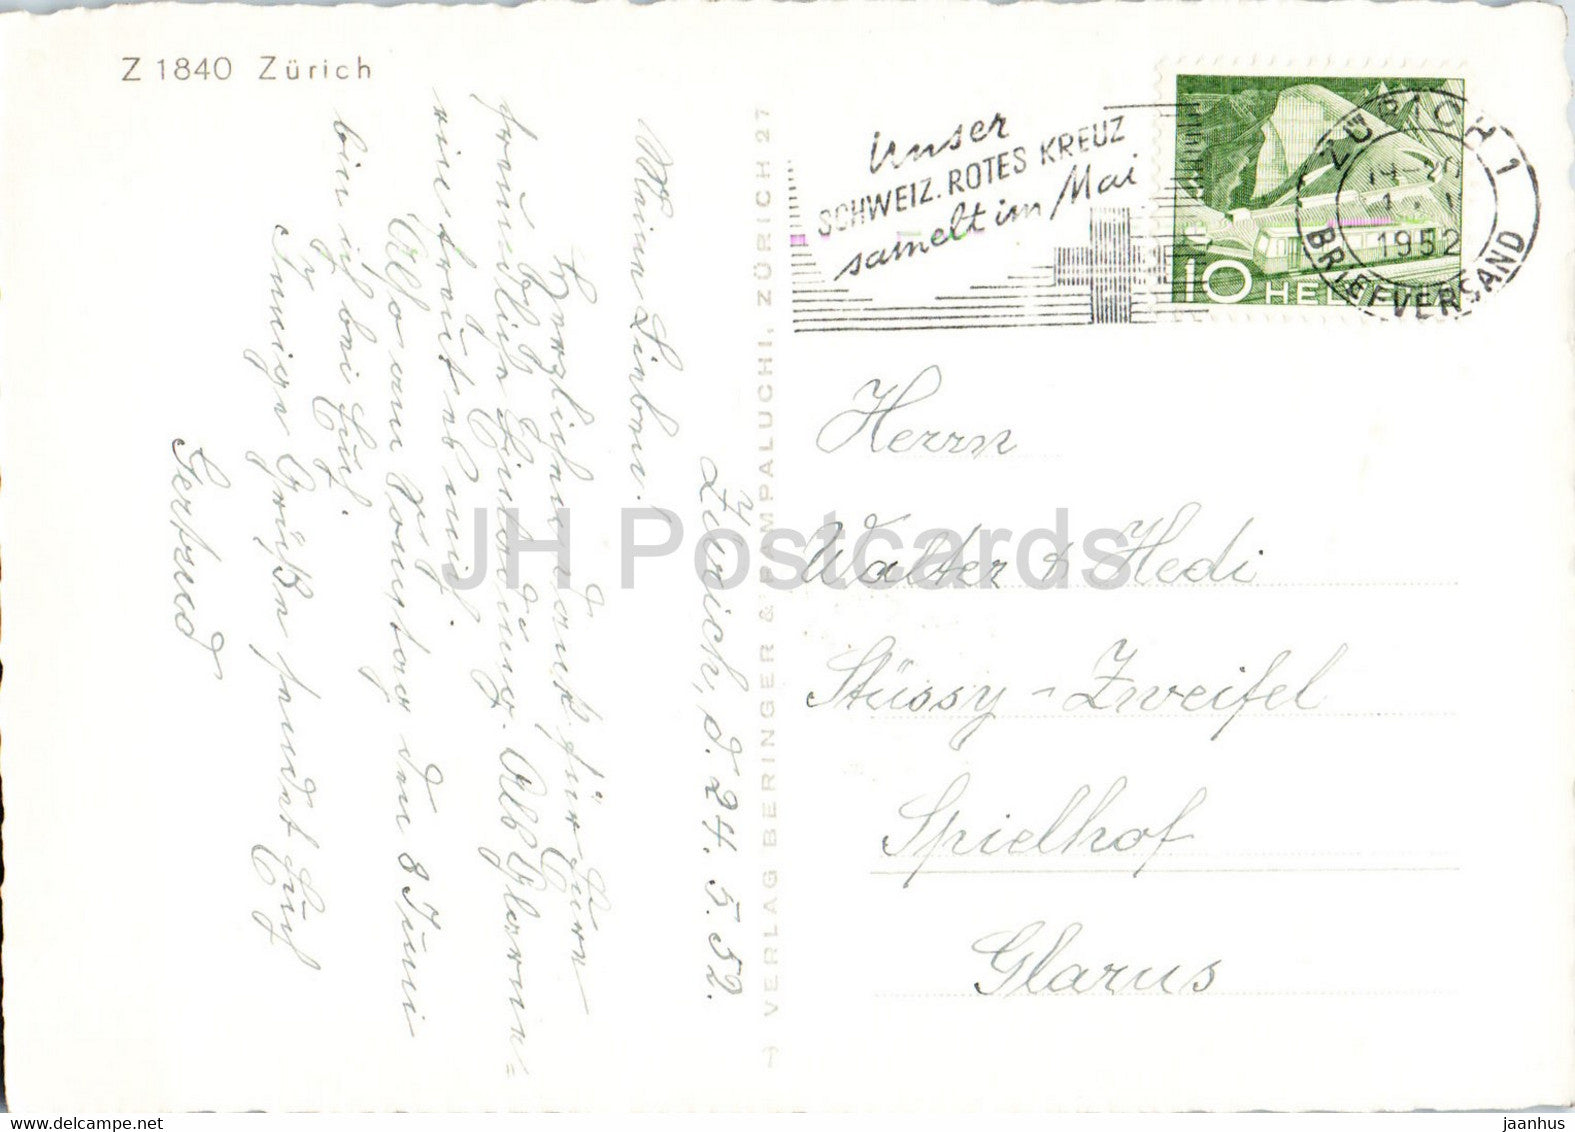 Z 1840 Zürich
Zürich, d. 24. 5. 52.
Meine Lieben.
Herzlichen Dank für Eure
freundliche Einladung.
mich
Also am Sonntag den 8 Juni
bin ich bei Euch.
Innige Grüße sendet Euch
Gertrud
VERLAG BERINGER & PAMPALUCHI, ZÜRICH 27
Unser
SCHWEIZ. ROTES KREUZ
samelt im Mai
ZÜRICH 1
1952
BRIEFVERSAND
10 HELVETIA
Herrn
Walter & Hedi
Stüssy-Zweifel
Spielhof
Glarus
JH Postcards
delcampe.net
jaanhus